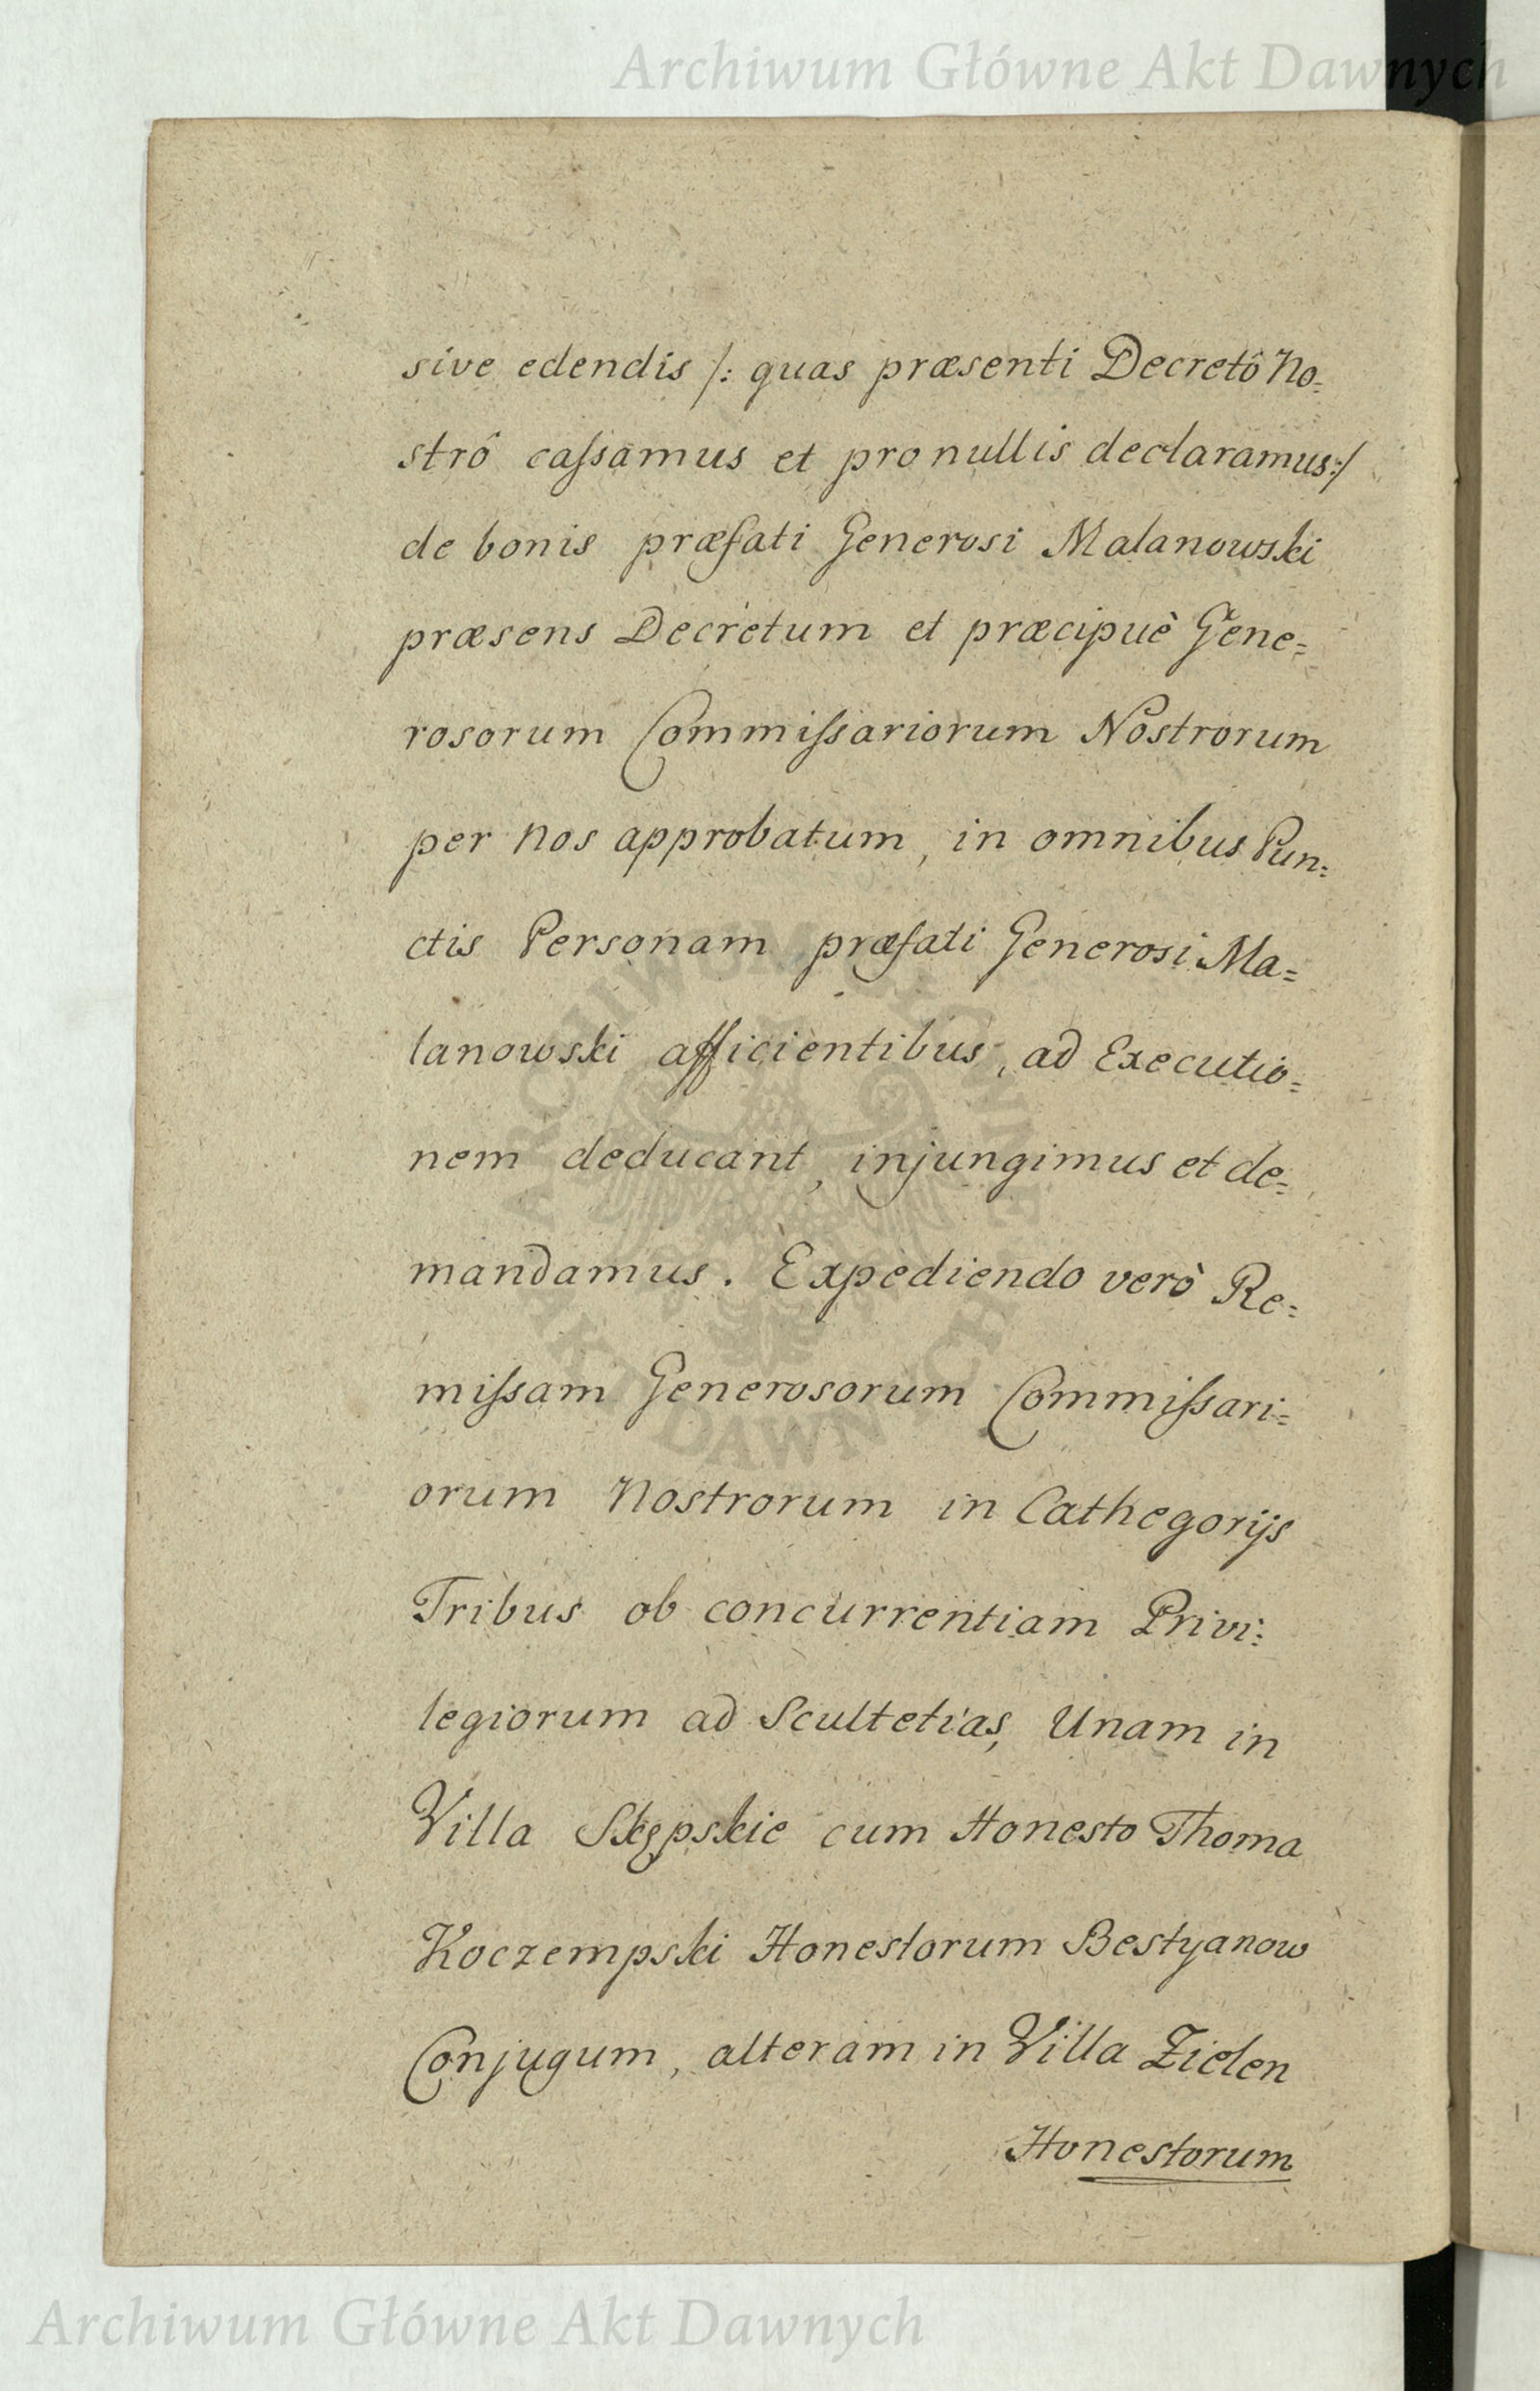 Archiwum Główne Akt Dawnych
sive edendis /: quas præsenti Decretô No=
strô caſsamus et pro nullis declaramus:/
de bonis præfati Generosi Malanowski
præsens Decretum et præcipuè Gene=
rosorum Commiſsariorum Nostrorum
per nos approbatum, in omnibus Pun=
ctis Personam præfati Generosi Ma=
lanowski afficientibus, ad Executio=
nem deducant, injungimus et de=
mandamus. Expediendo verò Re=
miſsam Generosorum Commiſsari=
orum Nostrorum in Cathegorijs
Tribus ob concurrentiam Privi=
legiorum ad Scultetias, Unam in
Villa Skępskie cum Honesto Thoma
Koczempski Honestorum Bestyanow
Conjugum, alteram in Villa Zielen
Honestorum
ARCHIWUM GŁÓWNE AKT DAWNYCH
Archiwum Główne Akt Dawnych